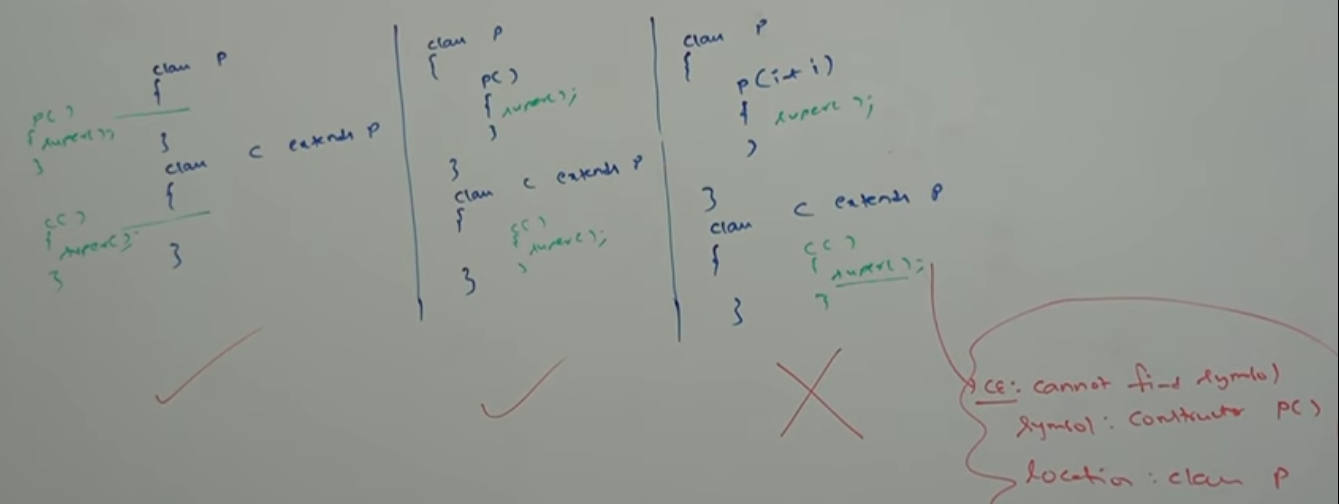 class P
{
P()
{ super();
}
}
class C extends P
{
C()
{ super();
}
}
class P
{
P()
{ super();
}
}
class C extends P
{
C()
{ super();
}
}
class P
{
P(int i)
{ super();
}
}
class C extends P
{
C()
{ super();
}
}
CE: cannot find symbol
symbol: constructor P()
location: class P